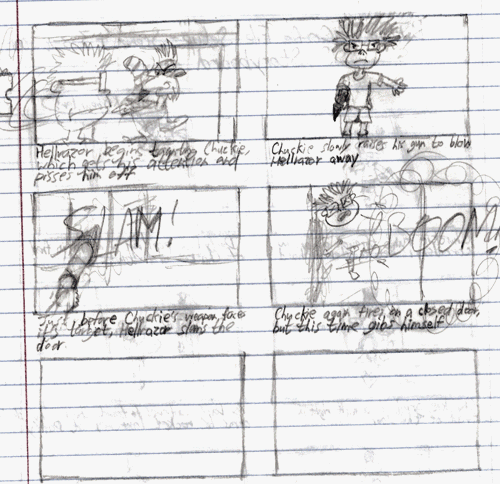 Hellrazor begins taunting Chuckie,
which gets his attention and
pisses him off
Chuckie slowly raises his gun to blow
Hellrazor away
SLAM!
BOOM!
Just before Chuckie's weapon faces
target, Hellrazor slams the
door.
Chuckie again fires on a closed door,
but this time gibs himself